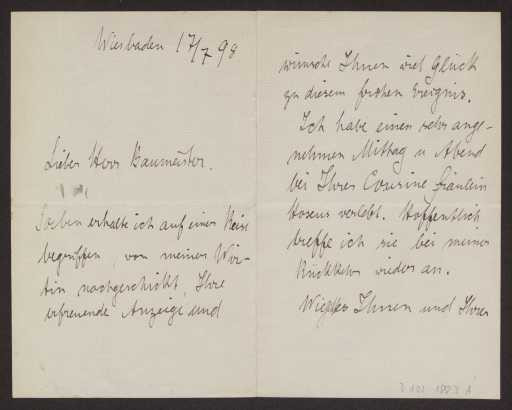 Wiesbaden 17/7 98
Lieber Herr Baumeister.
Soeben erhalte ich auf einer Reise
begriffen, von meiner Wir-
tin nachgeschickt, Ihre
erfreuende Anzeige und
wünsche Ihnen viel Glück
zu diesem frohen Ereignis.
Ich habe einen sehr ange-
nehmen Mittag u Abend
bei Ihrer Cousine Fräulein
verlebt. Hoffentlich
treffe ich sie bei meiner
Rückkehr wieder an.
Ihnen und Ihrer